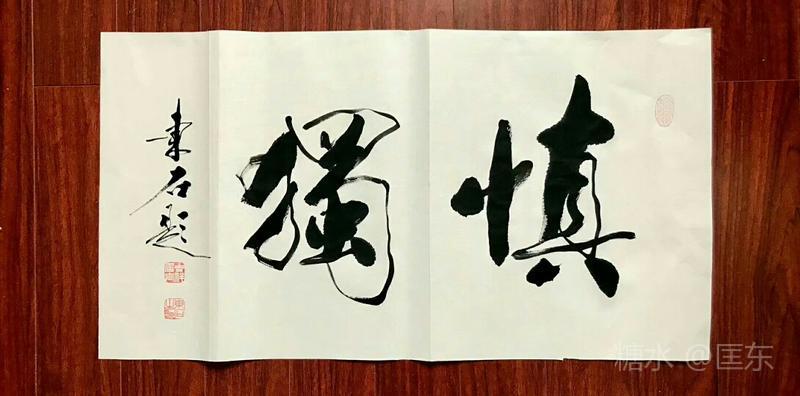 慎獨
東石題
糖水 @匡东